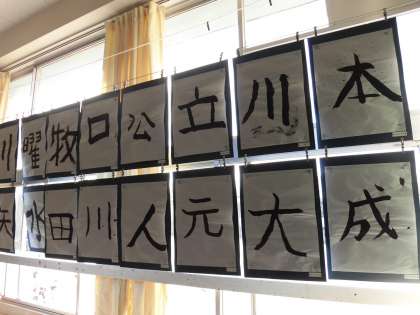 曜牧口公立川本
水田川人元大成